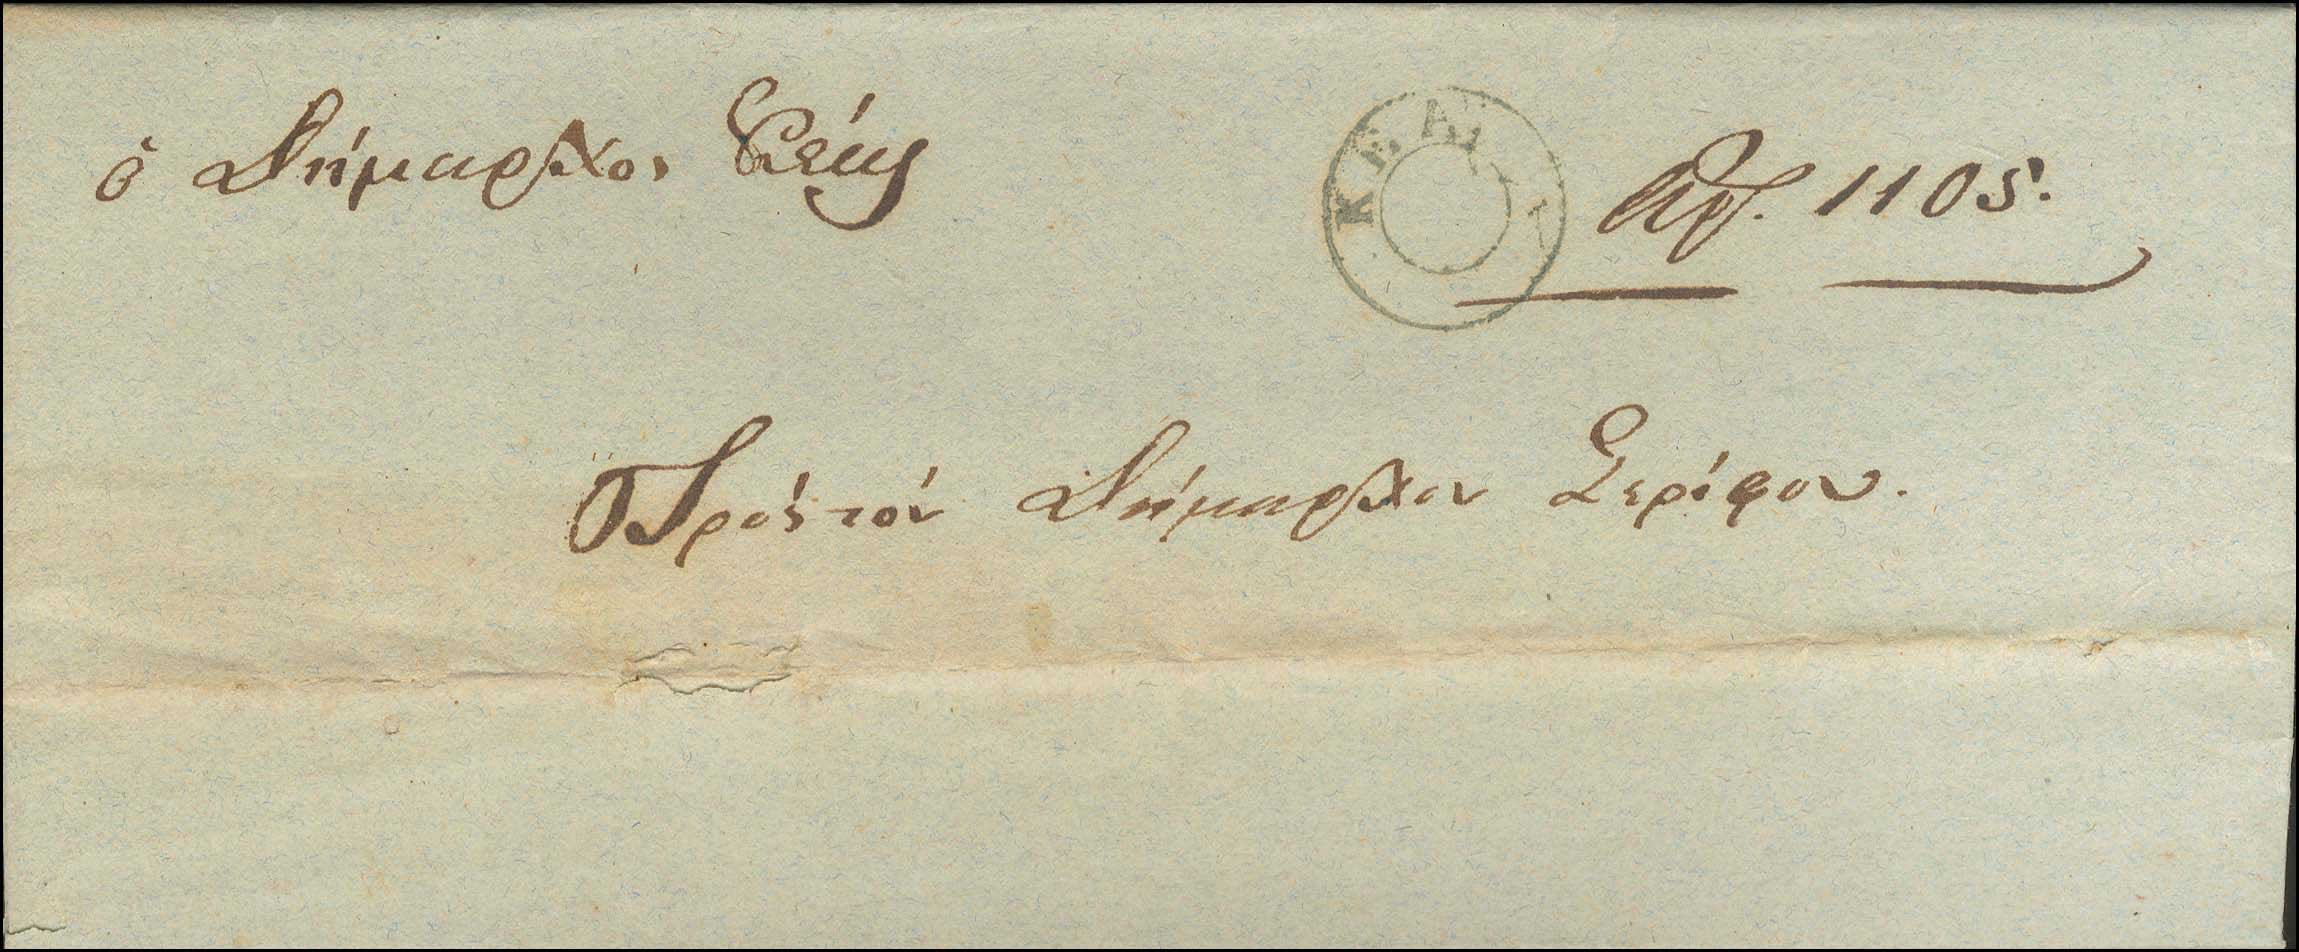 ὁ Δήμαρχος Κέας
ΚΕΑ
Ἀρθ. 1105.
Πρὸς τὸν Δήμαρχον Σερίφου.